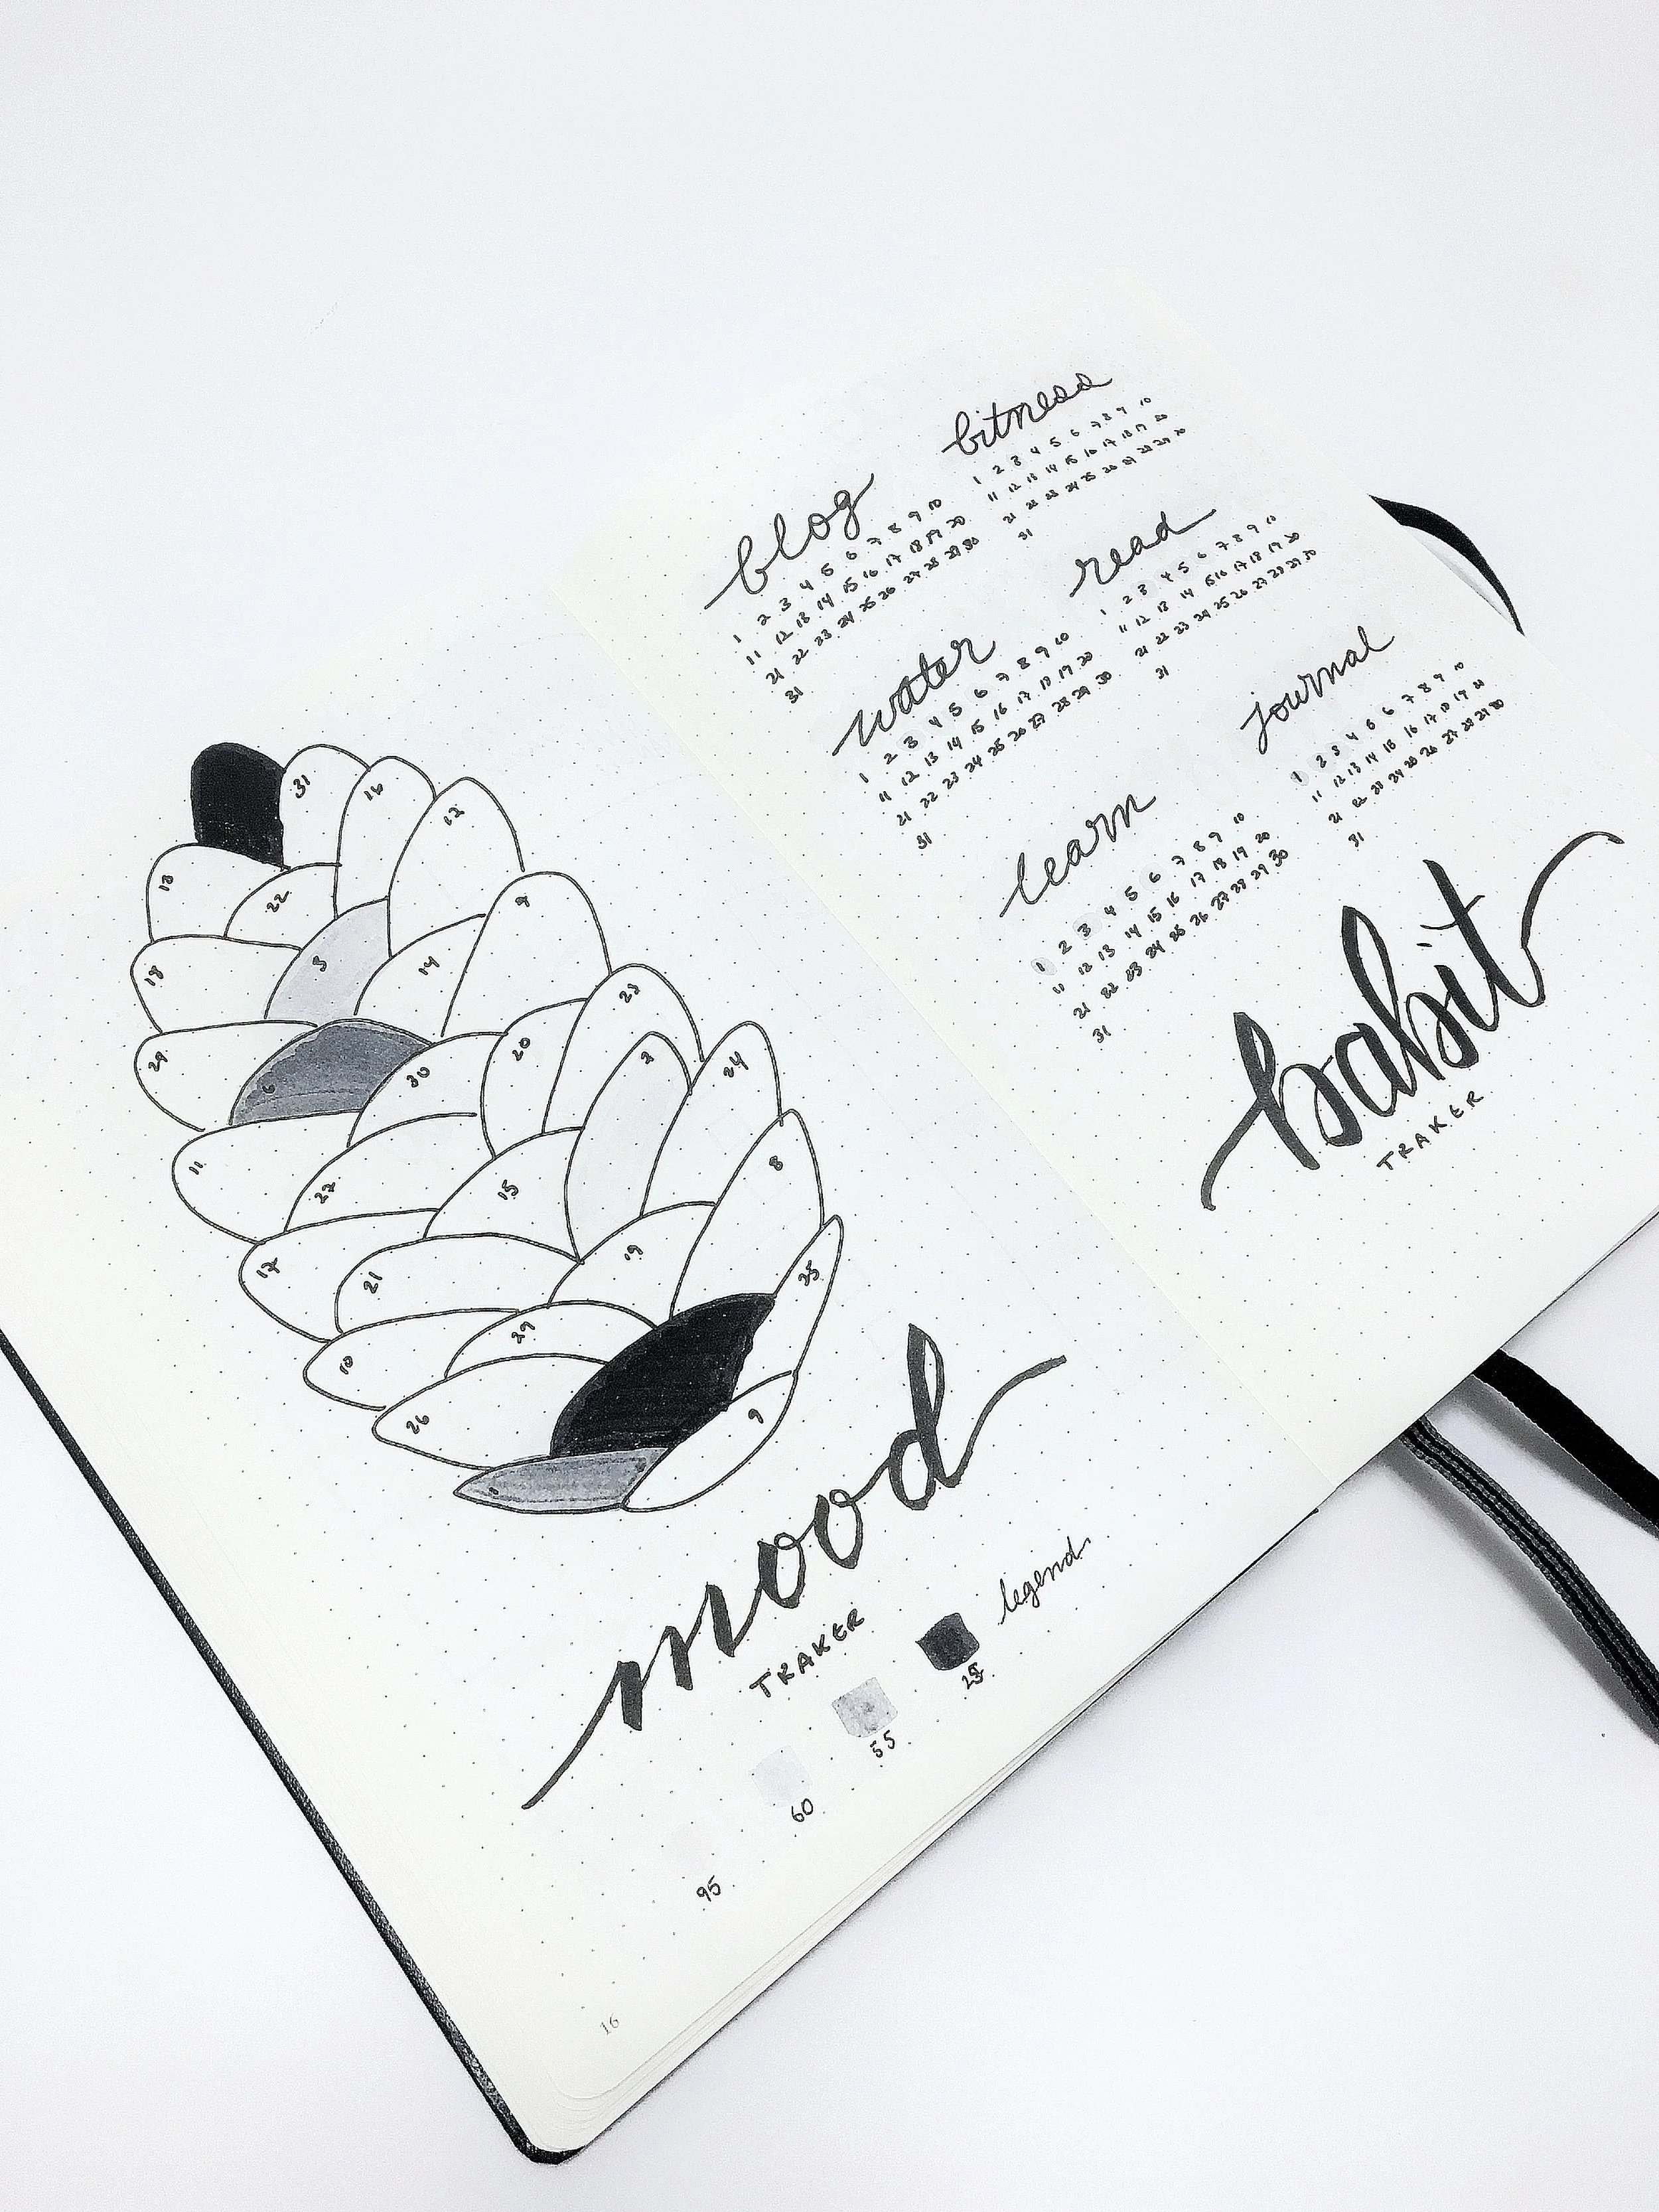 31
16
12
13
22
9
18
3
14
23
29
6
30
20
2
24
11
27
15
8
17
21
19
25
10
29
26
9
mood
TRAKER
legend
95 60 55
16
blog
1 2 3 4 5 6 7 8 9 10
11 12 13 14 15 16 17 18 19 20
21 22 23 24 25 26 27 28 29 30
31
fitness
1 2 3 4 5 6 7 8 9 10
11 12 13 14 15 16 17 18 19 20
21 22 23 24 25 26 27 28 29 30
31
water
1 2 3 4 5 6 7 8 9 10
11 12 13 14 15 16 17 18 19 20
21 22 23 24 25 26 27 28 29 30
31
read
1 2 3 4 5 6 7 8 9 10
11 12 13 14 15 16 17 18 19 20
21 22 23 24 25 26 27 28 29 30
31
learn
1 2 3 4 5 6 7 8 9 10
11 12 13 14 15 16 17 18 19 20
21 22 23 24 25 26 27 28 29 30
31
journal
1 2 3 4 5 6 7 8 9 10
11 12 13 14 15 16 17 18 19 20
21 22 23 24 25 26 27 28 29 30
31
habit
TRAKER